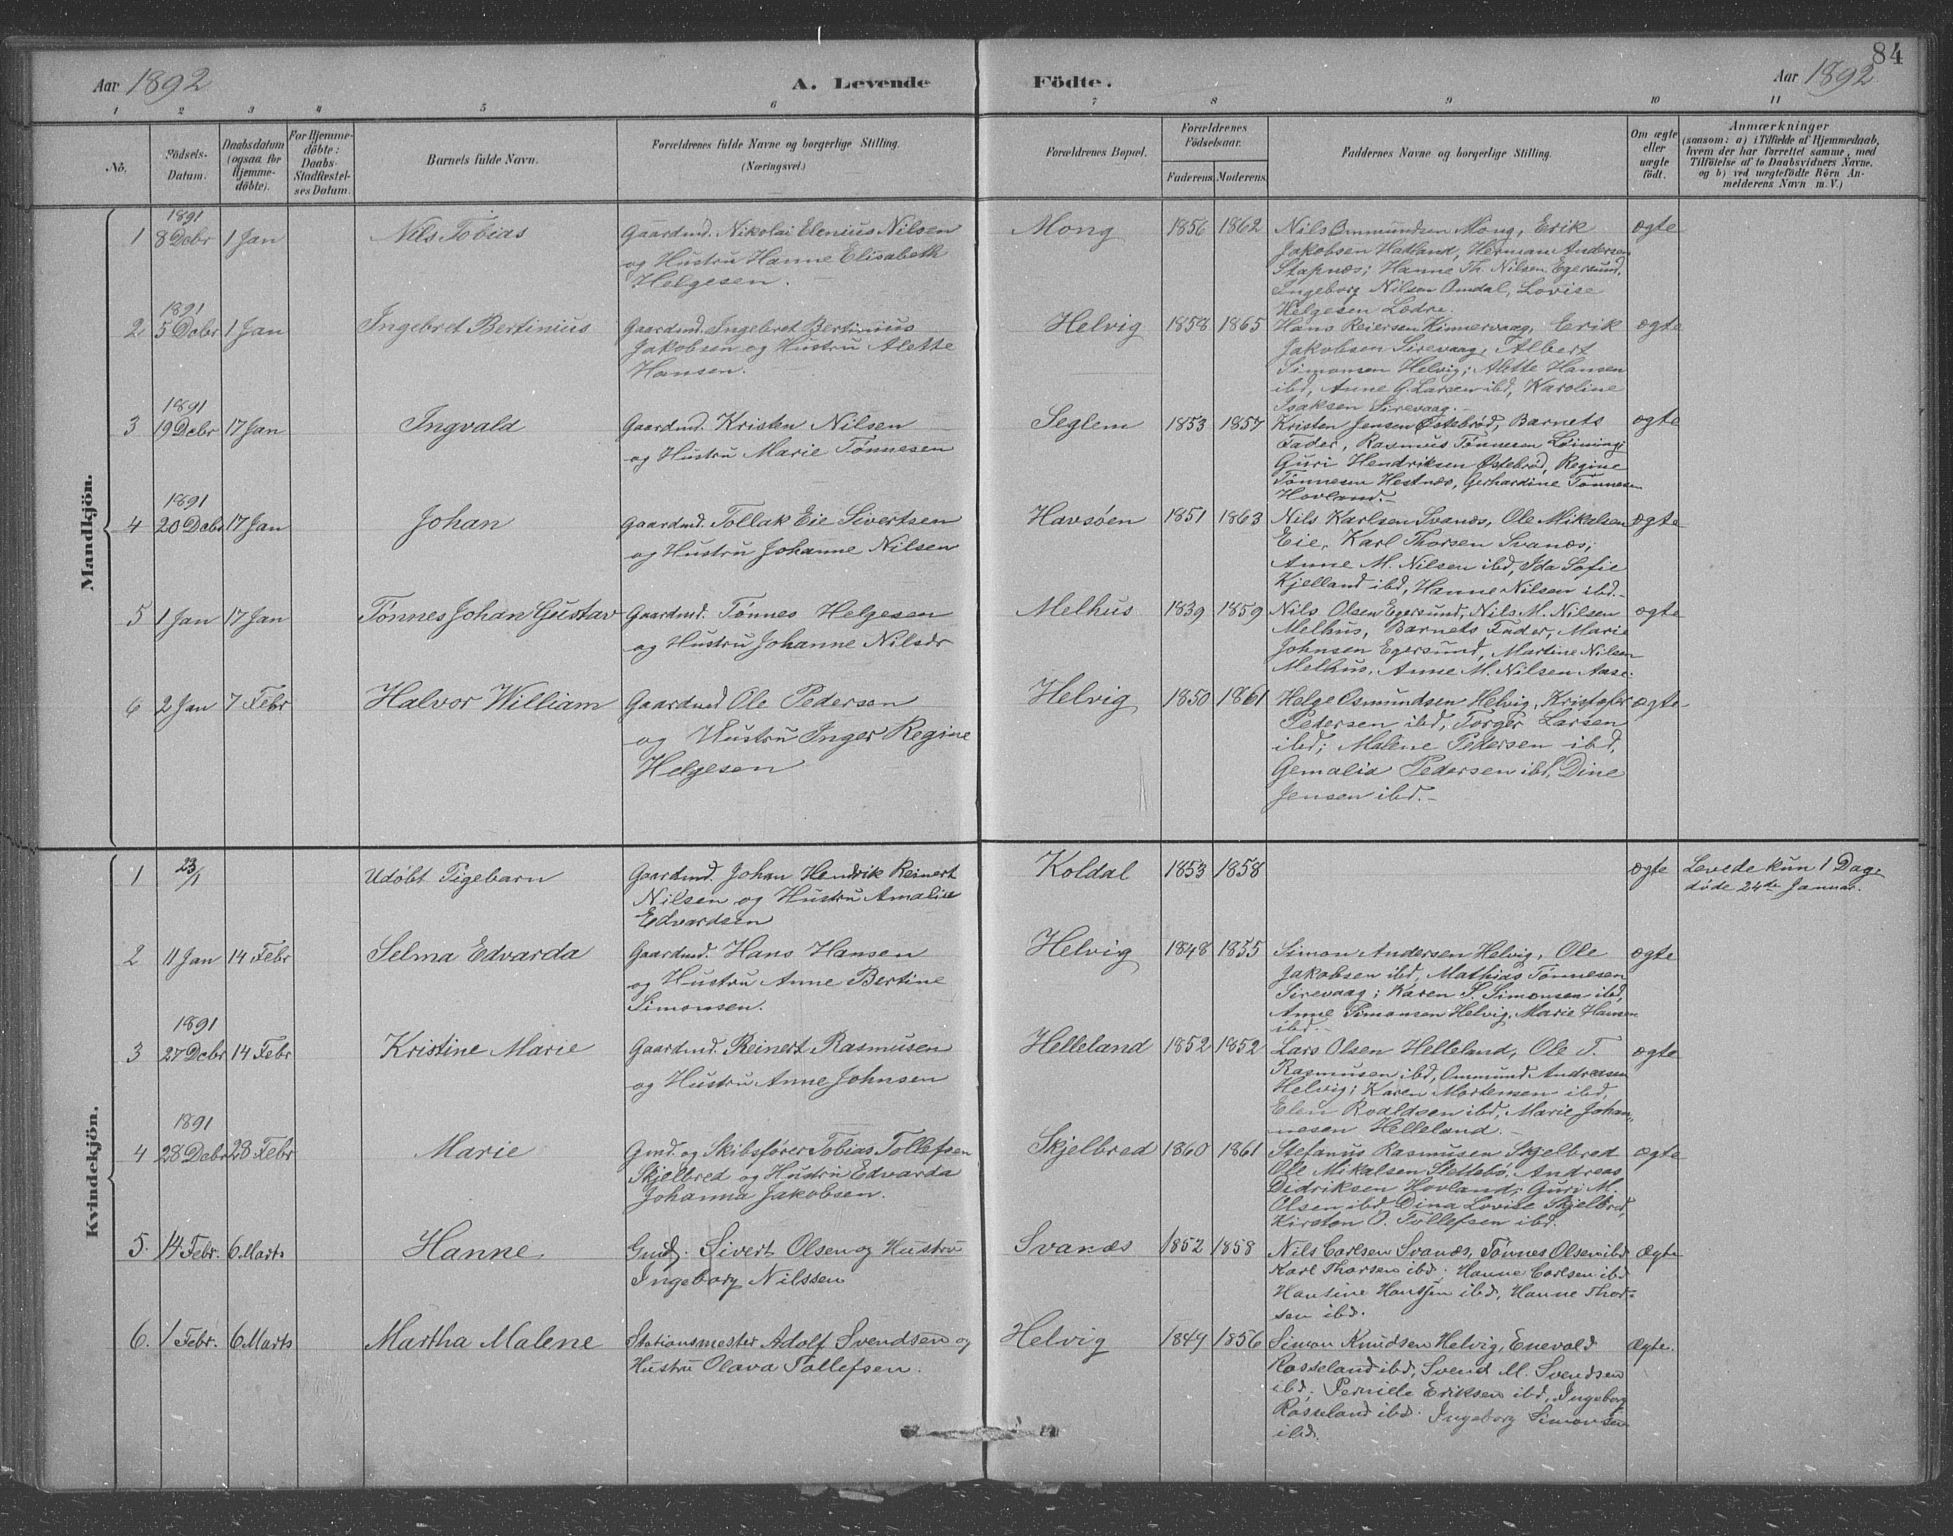 84
Aar 1892
A. Levende Födte.
Aar 1892
1 2 3 4 5 6 7 8 9 10 11
No.
Födsels-Datum.
Daabsdatum (ogsaa for Hjemme-døbte).
For Hjemme-döbte: Daabs-Stadfæstel-ses Datum.
Barnets fulde Navn.
Forældrenes fulde Navne og borgerlige Stilling.
(Næringsvei.)
Forældrenes Bopæl.
Forældrenes Födselsaar.
Faderens. Moderens.
Faddernes Navne og borgerlige Stilling.
Om ægte eller uægte födt.
Anmærkninger
(saasom: a) i Tilfælde af Hjemmedaab, hvem der har forrettet samme, med Tilföielse af to Daabsvidners Navne, og b) ved uægtefödte Börn An-melderens Navn m. V.)
Mandkjön.
1891
1 8 Decbr 1 Jan Nils Tobias
Gaardmd. Nikolai Elenius Nilsen
og Hustru Hanne Elisabeth
Helgesen.
Mong 1856 1862
Nils Ommundsen Mong, Erik
Jakobsen Hadland, Herman Andersen
Stapnæs; Hanne Th. Nilsen Egersund,
Ingeborg Nilsen Omdal, Lovise
Helgesen Lodre.
ægte
1891
2 5 Decbr 1 Jan Ingebret Bertinius
Gaardmd. Ingebret Bertinius
Jakobsen og Hustru Alette
Hansen.
Helvig 1858 1865
Hans Reiersen Kinnervaag, Erik
Jakobsen Sirevaag, Albert
Simonsen Helvig; Alette Hansen
ibd, Anne G. Larsen ibd, Karoline
Isaksen Sirevaag.
ægte
1891
3 19 Decbr 17 Jan Ingvald
Gaardmd. Kristen Nilsen
og Hustru Marie Tønnesen
Seglem 1853 1857
Kristen Jensen Østebrød, Barnets
Fader, Rasmus Tønnesen Løining;
Guri Hendriksen Østebrød, Regine
Tønnesen Hestnæs, Gerhardine Tønnesen
Hovland.
ægte
1891
4 20 Decbr 17 Jan Johan
Gaardmd. Tollak Eie Sivertsen
og Hustru Johanne Nilsen
Havsøen 1851 1863
Nils Karlsen Svanæs, Ole Mikalsen
Eie, Karl Thorsen Svanæs;
Anne M. Nilsen ibd, Ida Sofie
Kjelland ibd, Hanne Nilsen ibd.
ægte
5 1 Jan 17 Jan Tønnes Johan Gustav
Gaardmd. Tønnes Helgesen
og Hustru Johanne Nilsdr
Melhus 1839 1859
Nils Olsen Egersund, Nils M. Nilsen
Melhus, Barnets Fader, Marie
Johnsen Egersund, Martine Nilsen
Melhus, Anne M. Nilsen Aase.
ægte
6 2 Jan 7 Febr Halvor William
Gaardmd Ole Pedersen
og Hustru Inger Regine
Helgesen
Helvig 1850 1861
Helge Osmundsen Helvig, Kristofer
Pedersen ibd, Torger Larsen
ibd; Malene Pedersen ibd,
Gemalia Pedersen ibd, Dine
Jensen ibd.
ægte
Kvindekjön.
1 23/1 Udøbt Pigebarn
Gaardmd. Johan Hendrik Reinert
Nilsen og Hustru Amalie
Edvardsen
Koldal 1853 1858
ægte
Levede kun 1 Dag,
døde 24de Januar.
2 11 Jan 14 Febr Selma Edvarda
Gaardmd. Hans Hansen
og Hustru Anne Bertine
Simonsen.
Helvig 1848 1855
Simon Andersen Helvig, Ole
Jakobsen ibd, Mathias Tønnesen
Sirevaag; Karen S. Simonsen ibd,
Anne Simonsen Helvig, Marie Hansen
ibd.
ægte
1891
3 27 Decbr 14 Febr Kristine Marie
Gaardmd. Reinert Rasmusen
og Hustru Anne Johnsen
Helleland 1852 1852
Lars Olsen Helleland, Ole T.
Rasmusen ibd, Ommund Andreasen
Helvig; Karen Mortensen ibd,
Elen Roaldsen ibd, Marie Johan-
nesen Helleland.
ægte
1891
4 28 Decbr 28 Febr Marie
Gmd. og Skibsfører Tobias Tollefsen
Skjelbred og Hustru Edvarda
Johanna Jakobsen.
Skjelbred 1860 1861
Stefanus Rasmusen Skjelbred
Ole Mikalsen Slettebø, Andreas
Didriksen Hovland; Guri M.
Olsen ibd, Dina Lovise Skjelbred,
Kirsten O. Tollefsen ibd.
ægte
5. 14 Febr. 6 Marts Hanne
Gmd. Sivert Olsen og Hustru
Ingeborg Nilssen
Svanæs 1852 1858
Nils Carlsen Svanæs, Tønnes Olsen ibd
Karl Thorsen ibd; Hanne Carlsen ibd
Hansine Hanssen ibd, Hanne Thor-
sen ibd.
Ægte
6. 1 Febr. 6 Marts Martha Malene
Stationsmester Adolf Svendsen og
Hustru Olava Tollefsen.
Helvig 1849 1856
Simon Knudsen Helvig, Enevold
Rosseland ibd, Svend M. Svendsen
ibd; Pernille Eriksen ibd, Ingeborg
Rosseland ibd. Ingeborg Simonsen
ibd.
Ægte.